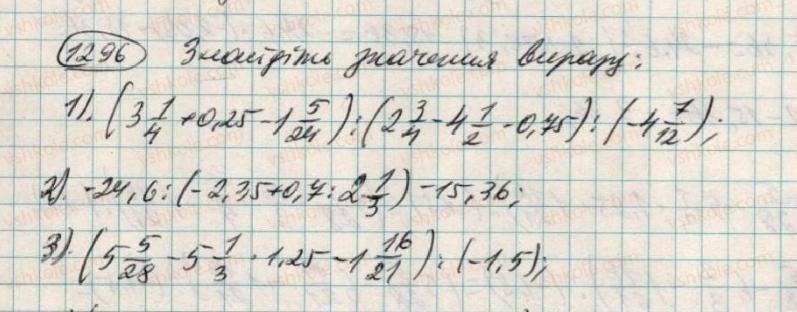 1296 Знайдіть значення виразу:
1). (3 1/4 + 0,25 - 1 5/24) : (2 3/4 - 4 1/2 - 0,75) : (-4 7/12);
2). -24,6 : (-2,35 + 0,7 : 2 1/3) - 15,36;
3). (5 5/28 - 5 1/3 · 1,25 - 1 16/21) : (-1,5);